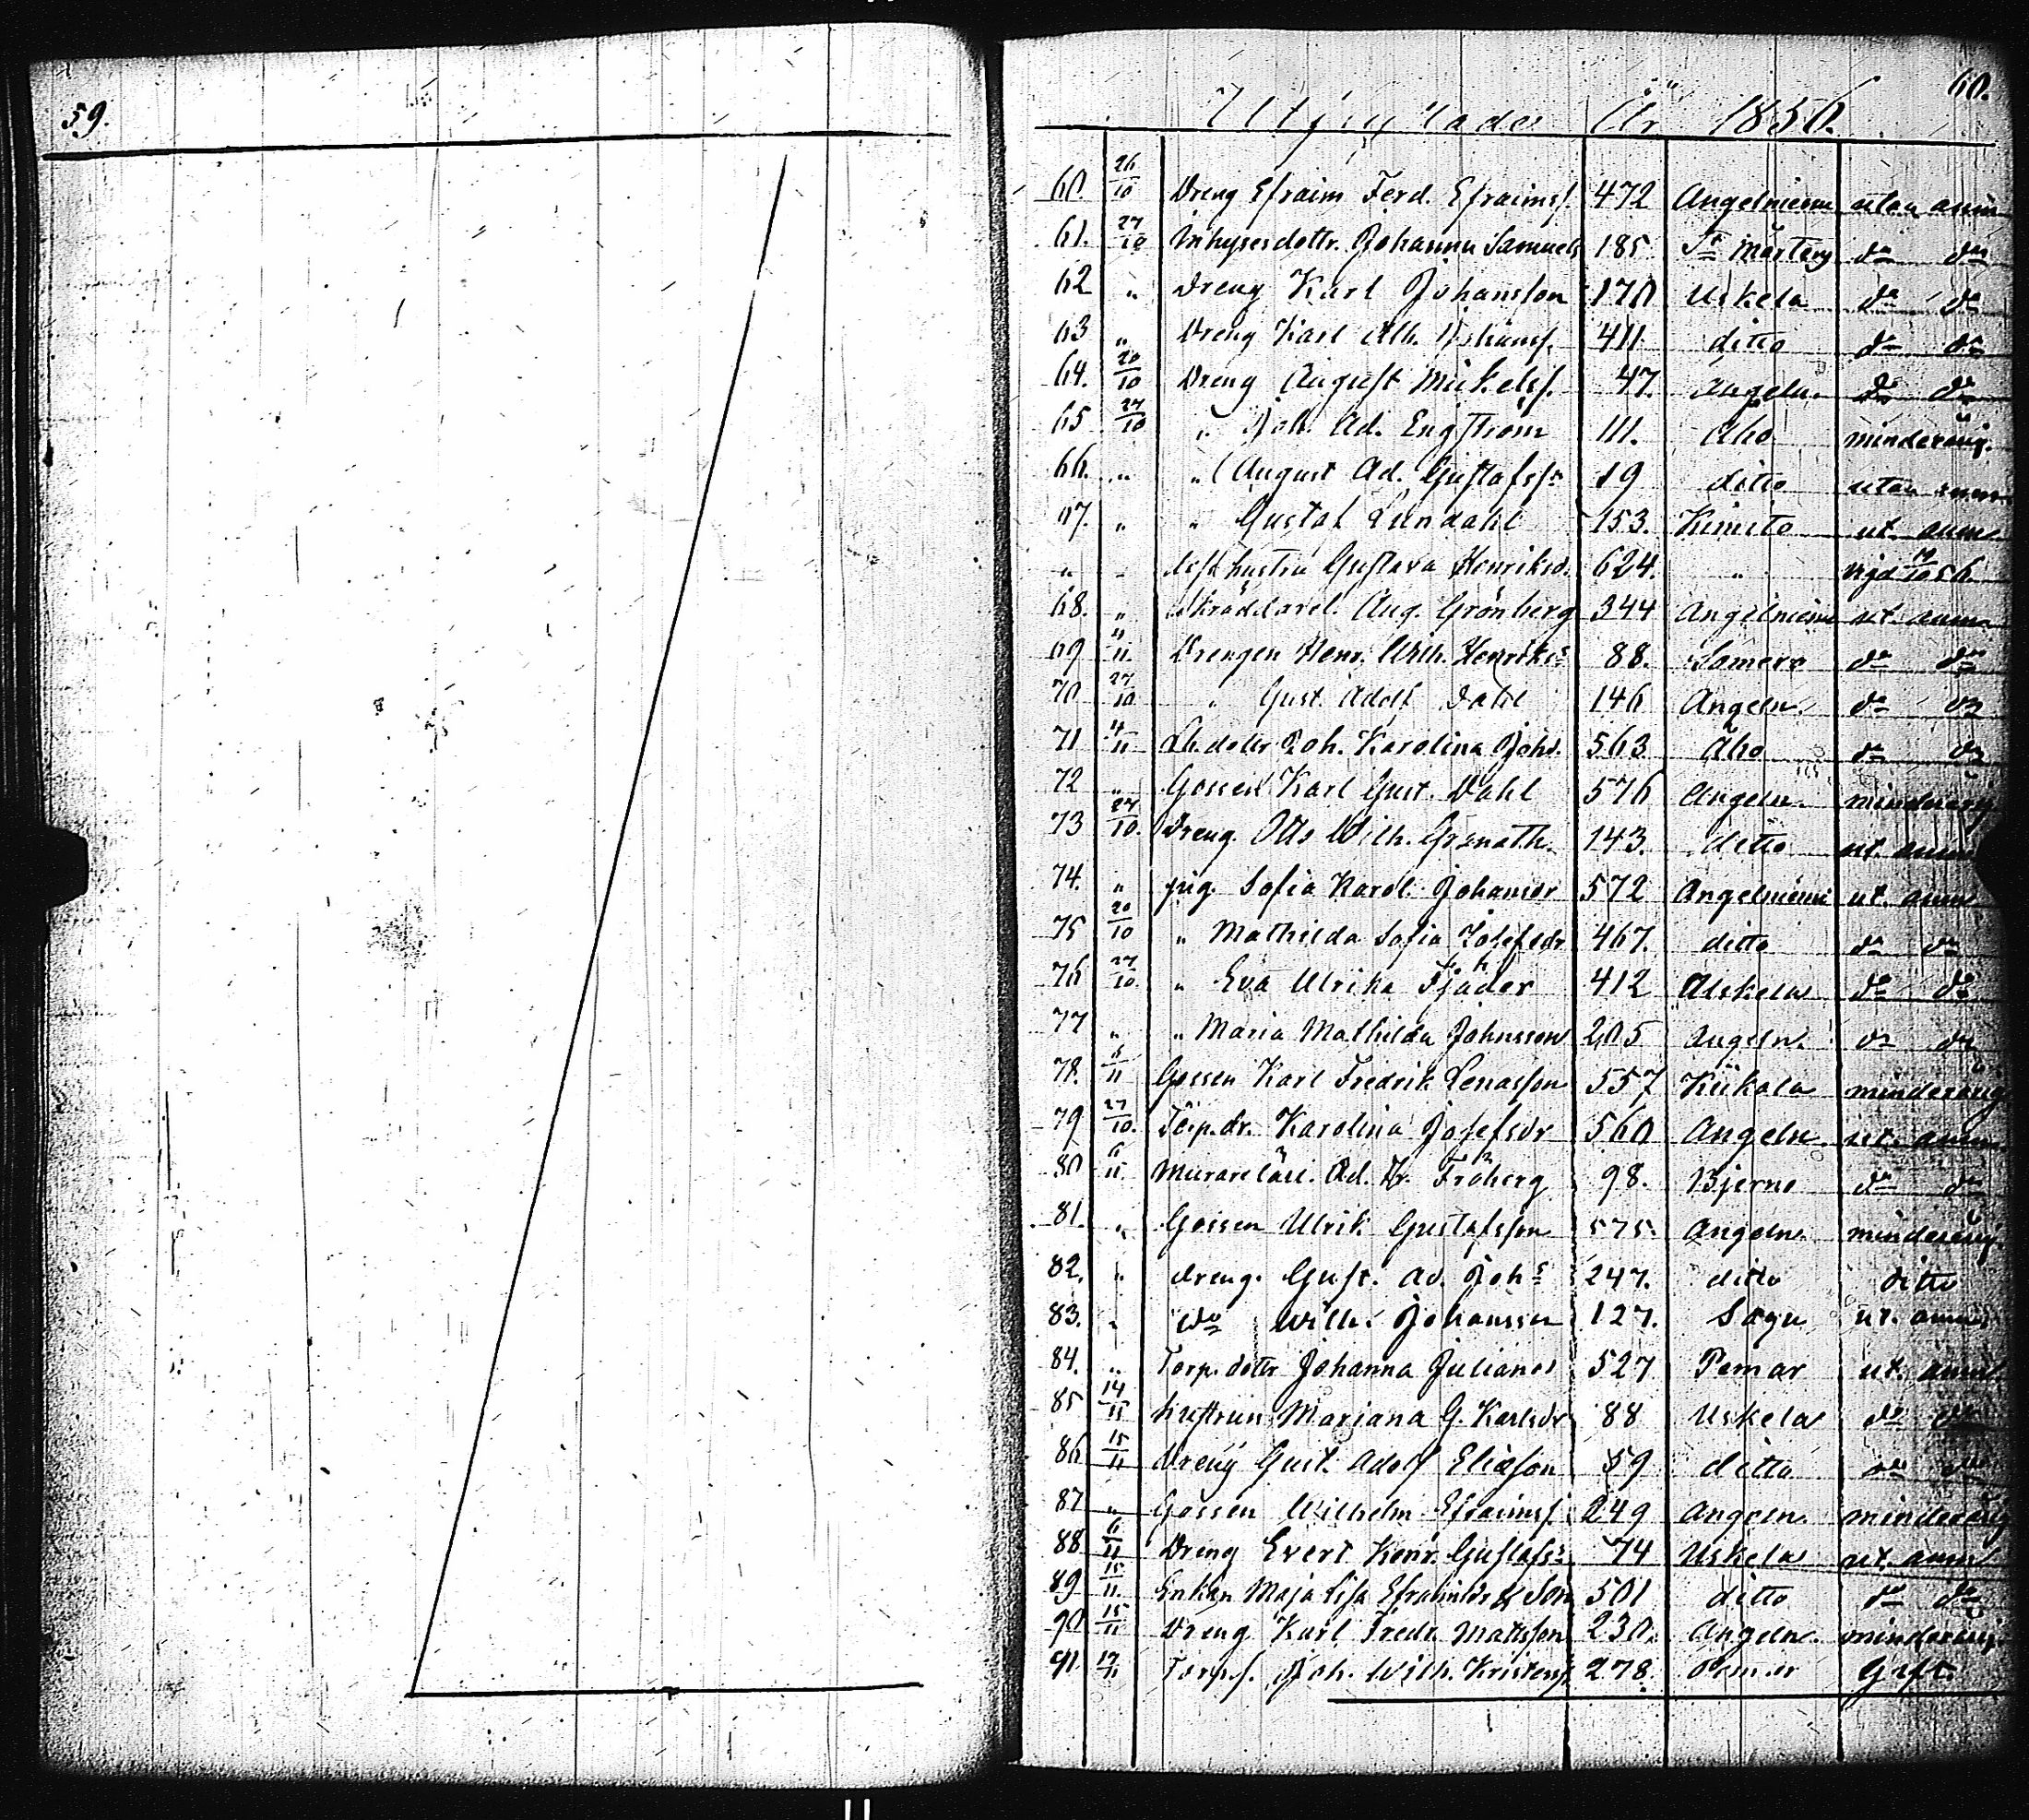 59.
60.
Utflyttade År 1856.
60. 26/10 Dreng Efraim Ferd. Efraimss. 472 Angelniemi utan anm
61. 27/10 Inhysesdottr. Johanna Samuels 185 St Mårtens do do
62 " Dreng Karl Johansson 170 Uskela do do
63 " Dreng Karl Alb. 411 ditto do do
64. 20/10 Dreng August Mickelss. 47. Angeln. do do
65 27/10 " Joh. Ad. Engström 111. Åbo minderårig.
66. " " August Ad. Gustafsson 19 ditto utan anm.
67. " " Gustaf Lundahl 153. Kimito ut. anm
" " dess hustru Gustava Henriksd. 624. " vigd 56
68. " Skräddarel. Aug. Grönberg 344 Angelniemi ut. anm.
69 4/11 Drengen Henr. Wilh. Henrikss 88. Somero do do
70 27/10 " Gust. Adolf Dahl 146 Angeln. do do
71 4/11 dottr Joh. Karolina Johd. 563 Åbo do do
72 " Gossen Karl Gust. Dahl 576 Angeln. minderårig
73 27/10. Dreng Otto Wilh. Granath 143. ditto ut. anm
74. " pig. Sofia Karol. Johansdr 572 Angelniemi ut. anm
75 20/10 " Mathilda Sofia Josefsdr 467. ditto do do
76 27/10. " Eva Ulrika Fjäder 412 Uskela do do
77 " " Maria Mathilda Johnsson 205 Angeln. do do
78. 5/11 Gossen Karl Fredrik Lenasson 557 Kiikala minderårig
79 27/10. Torp.dr. Karolina Josefsdr 560 Angeln. ut. anm
80 6/11. Murarelärl. Ad. Fr. Fröberg 98. Bjerno do do
81. " Gossen Ulrik Gustafsson 575. Angeln. minderårig.
82. " dreng. Gust. Ad. Johs 247. ditto ditto
83. " do Wilh. Johansson 127. Sagu ut. anm
84. " Torp. dottr Johanna Julianad 527 Pemar ut. anm
85 14/11 hustrun Mariana G. Karlsdr 88 Uskela do do
86 15/11 Dreng Gust. Adolf Eliasson 59 ditto do do
87 " Gossen Wilhelm Efraimss. 249 Angeln. minderårig
88 6/11 Dreng Evert Henr. Gustafss. 74 Uskela ut. anm
89 15/11. Enkan Maja Lisa Efraimsdr & Son 501 ditto do do
90 15/11 Dreng Karl Fredr. Mattsson 230. Angeln. minderårig.
91. 17/11 Torp.s. Joh. Wilh. Kristerss. 278. Pemar Gift.